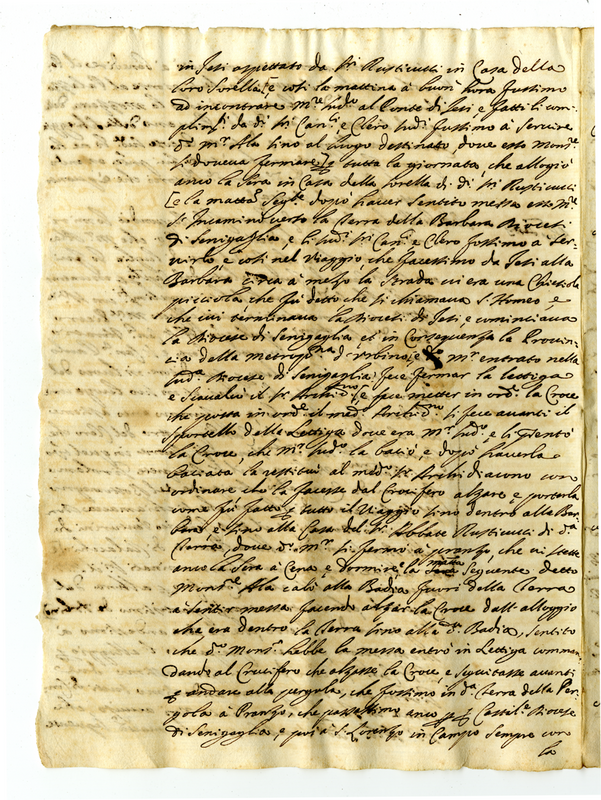 in Jesi aspettato da SS.ri Rusticucci in Casa della
loro Sorella, [e così la mattina à buon'hora fussimo
ad incontrare M.re sud.o al Ponte di Jesi e fatti li com-
plim.ti da di SS.ri Can.ci e Clero sud.i fussimo à servire
d.o M.r Ill.a sino al luogo destinato, dove esso Mons.re
si doveva fermare] e tutta la giornata, che allogiò
anco la Sera in Casa della sorella di di SS.ri Rusticucci
[e la matt.a seg.te dopò haver sentito messa esso M.re
s'incaminò verso la Terra della Barbara Diocesi
di Senigaglia, e li sud.i SS.ri Can.ci e Clero fossimo à ser-
virlo, e così nel Viaggio, che facessimo da Jesi alla
Barbara circa à mezzo la strada vi era una Chiesiola
picciola, che fù detto che si chiamava S. Homeo e
che ivi terminava la Diocesi di Jesi, e cominciava
la Diocese di Senigaglia et in Consequenza la Provin-
cia della metrop.na d'Urbino, e M.r entrato nella
sud.a Diocese di Senigaglia fece fermar la lettiga
e il S.r Archid.no, e fece metter in ord.e la Croce
che posta in ord.e il med.o Archid.no si fece avanti il
sportello della Lettiga dove era M.r sud.o e li presentò
la Croce, che M.r sud.o la baciò e dopò haverla
baciata la restituì al med.o S.r Archidiacono con
ordinare che la facesse dal Crocifero alzare e portarla
come fù fatto e tutto il Viaggio sino dentro alla Bar-
bara, e sino alla Casa del S.r Abbate Rusticucci di d.a
Terra, dove d.o M.r si fermò à pranzo, che vi stette
anco la Sera à Cena, e dormire e la matt.a sequente detto
Mons.re Ill.a calò alla Badia fuori della Terra
a sentir messa facendo alzar la Croce dall'alloggio
che era dentro la Terra sino alla d.a Badia, sentito
che d.o Mons.re hebbe la messa entrò in Lettiga comman-
dando al Crucifero che alzasse la Croce, e seguitasse avanti
e andare alla pergola, che fussimo in d.a Terra della Per-
gola à Pranzo, che passassimo anco p Castil.e Diocese
di Senigaglia, e poi à S. Lorenzo in Campo sempre con
la